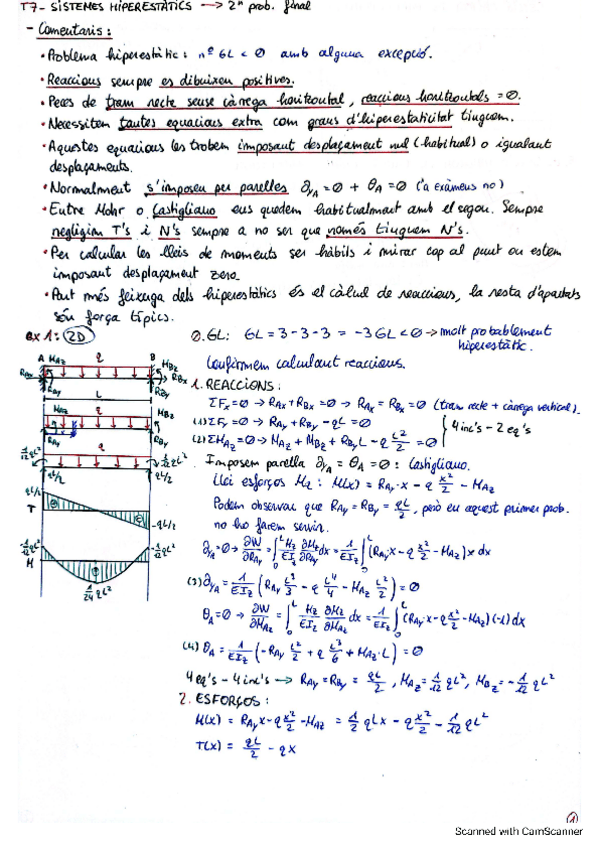 T7- SISTEMES HIPERESTÀTICS → 2n prob. final
- Comentaris:
• Problema hiperestàtic: nº GL < 0 amb alguna excepció.
• Reaccions sempre es dibuixen positives.
• Peces de tram recte sense càrrega horitzontal, reaccions horitzontals = 0.
• Necessitem tantes equacions extra com graus d'hiperestaticitat tinguem.
• Aquestes equacions les trobem imposant desplaçament nul (habitual) o igualant
desplaçaments.
• Normalment s'imposen per parelles ∂yA = 0 + θA = 0 (a exàmens no)
• Entre Mohr o Castigliano ens quedem habitualment amb el segon. Sempre
negligim T's i N's sempre a no ser que només tinguem N's.
• Per calcular les lleis de moments ser hàbils i mirar cap al punt on estem
imposant desplaçament zero.
• Part més feixuga dels hiperestàtics és el càlcul de reaccions, la resta d'apartats
són força típics.
ex 1: 2D
0. GL: GL = 3 - 3 - 3 = -3 GL < 0 → molt probablement
hiperestàtic.
Confirmem calculant reaccions.
1. REACCIONS:
ΣFx = 0 → RAx + RBx = 0 → RAx = RBx = 0 (tram recte + càrrega vertical).
(1) ΣFy = 0 → RAy + RBy - qL = 0
(2) ΣMAz = 0 → MAz + MBz + RBy L - q L²/2 = 0
4 inc's - 2 eq's
Imposem parella ∂yA = θA = 0: Castigliano.
Llei esforços Mz: M(x) = RAy·x - q x²/2 - MAz
Podem observar que RAy = RBy = qL/2, però en aquest primer prob.
no ho farem servir.
∂yA = 0 → ∂W/∂RAy = ∫₀ᴸ Mz/EIz ∂Mz/∂RAy dx = 1/EIz ∫₀ᴸ (RAy·x - q x²/2 - MAz) x dx
(3) ∂yA = 1/EIz (RAy L³/3 - q L⁴/4 - MAz L²/2) = 0
θA = 0 → ∂W/∂MAz = ∫₀ᴸ Mz/EIz ∂Mz/∂MAz dx = 1/EIz ∫₀ᴸ (RAy·x - q x²/2 - MAz)(-1) dx
(4) θA = 1/EIz (-RAy L²/2 + q L³/6 + MAz·L) = 0
4 eq's - 4 inc's → RAy = RBy = qL/2, MAz = 1/12 qL², MBz = -1/12 qL²
2. ESFORÇOS:
M(x) = RAy x - q x²/2 - MAz = 1/2 qLx - q x²/2 - 1/12 qL²
T(x) = qL/2 - qx
A MAz q B MBz
RAx RBx
RAy RBy
L
MAz q MBz
RAy RBy
1/12 qL² q 1/12 qL²
qL/2 qL/2
qL/2
T
-qL/2
-1/12 qL² -1/12 qL²
M
1/24 qL²
1
Scanned with CamScanner